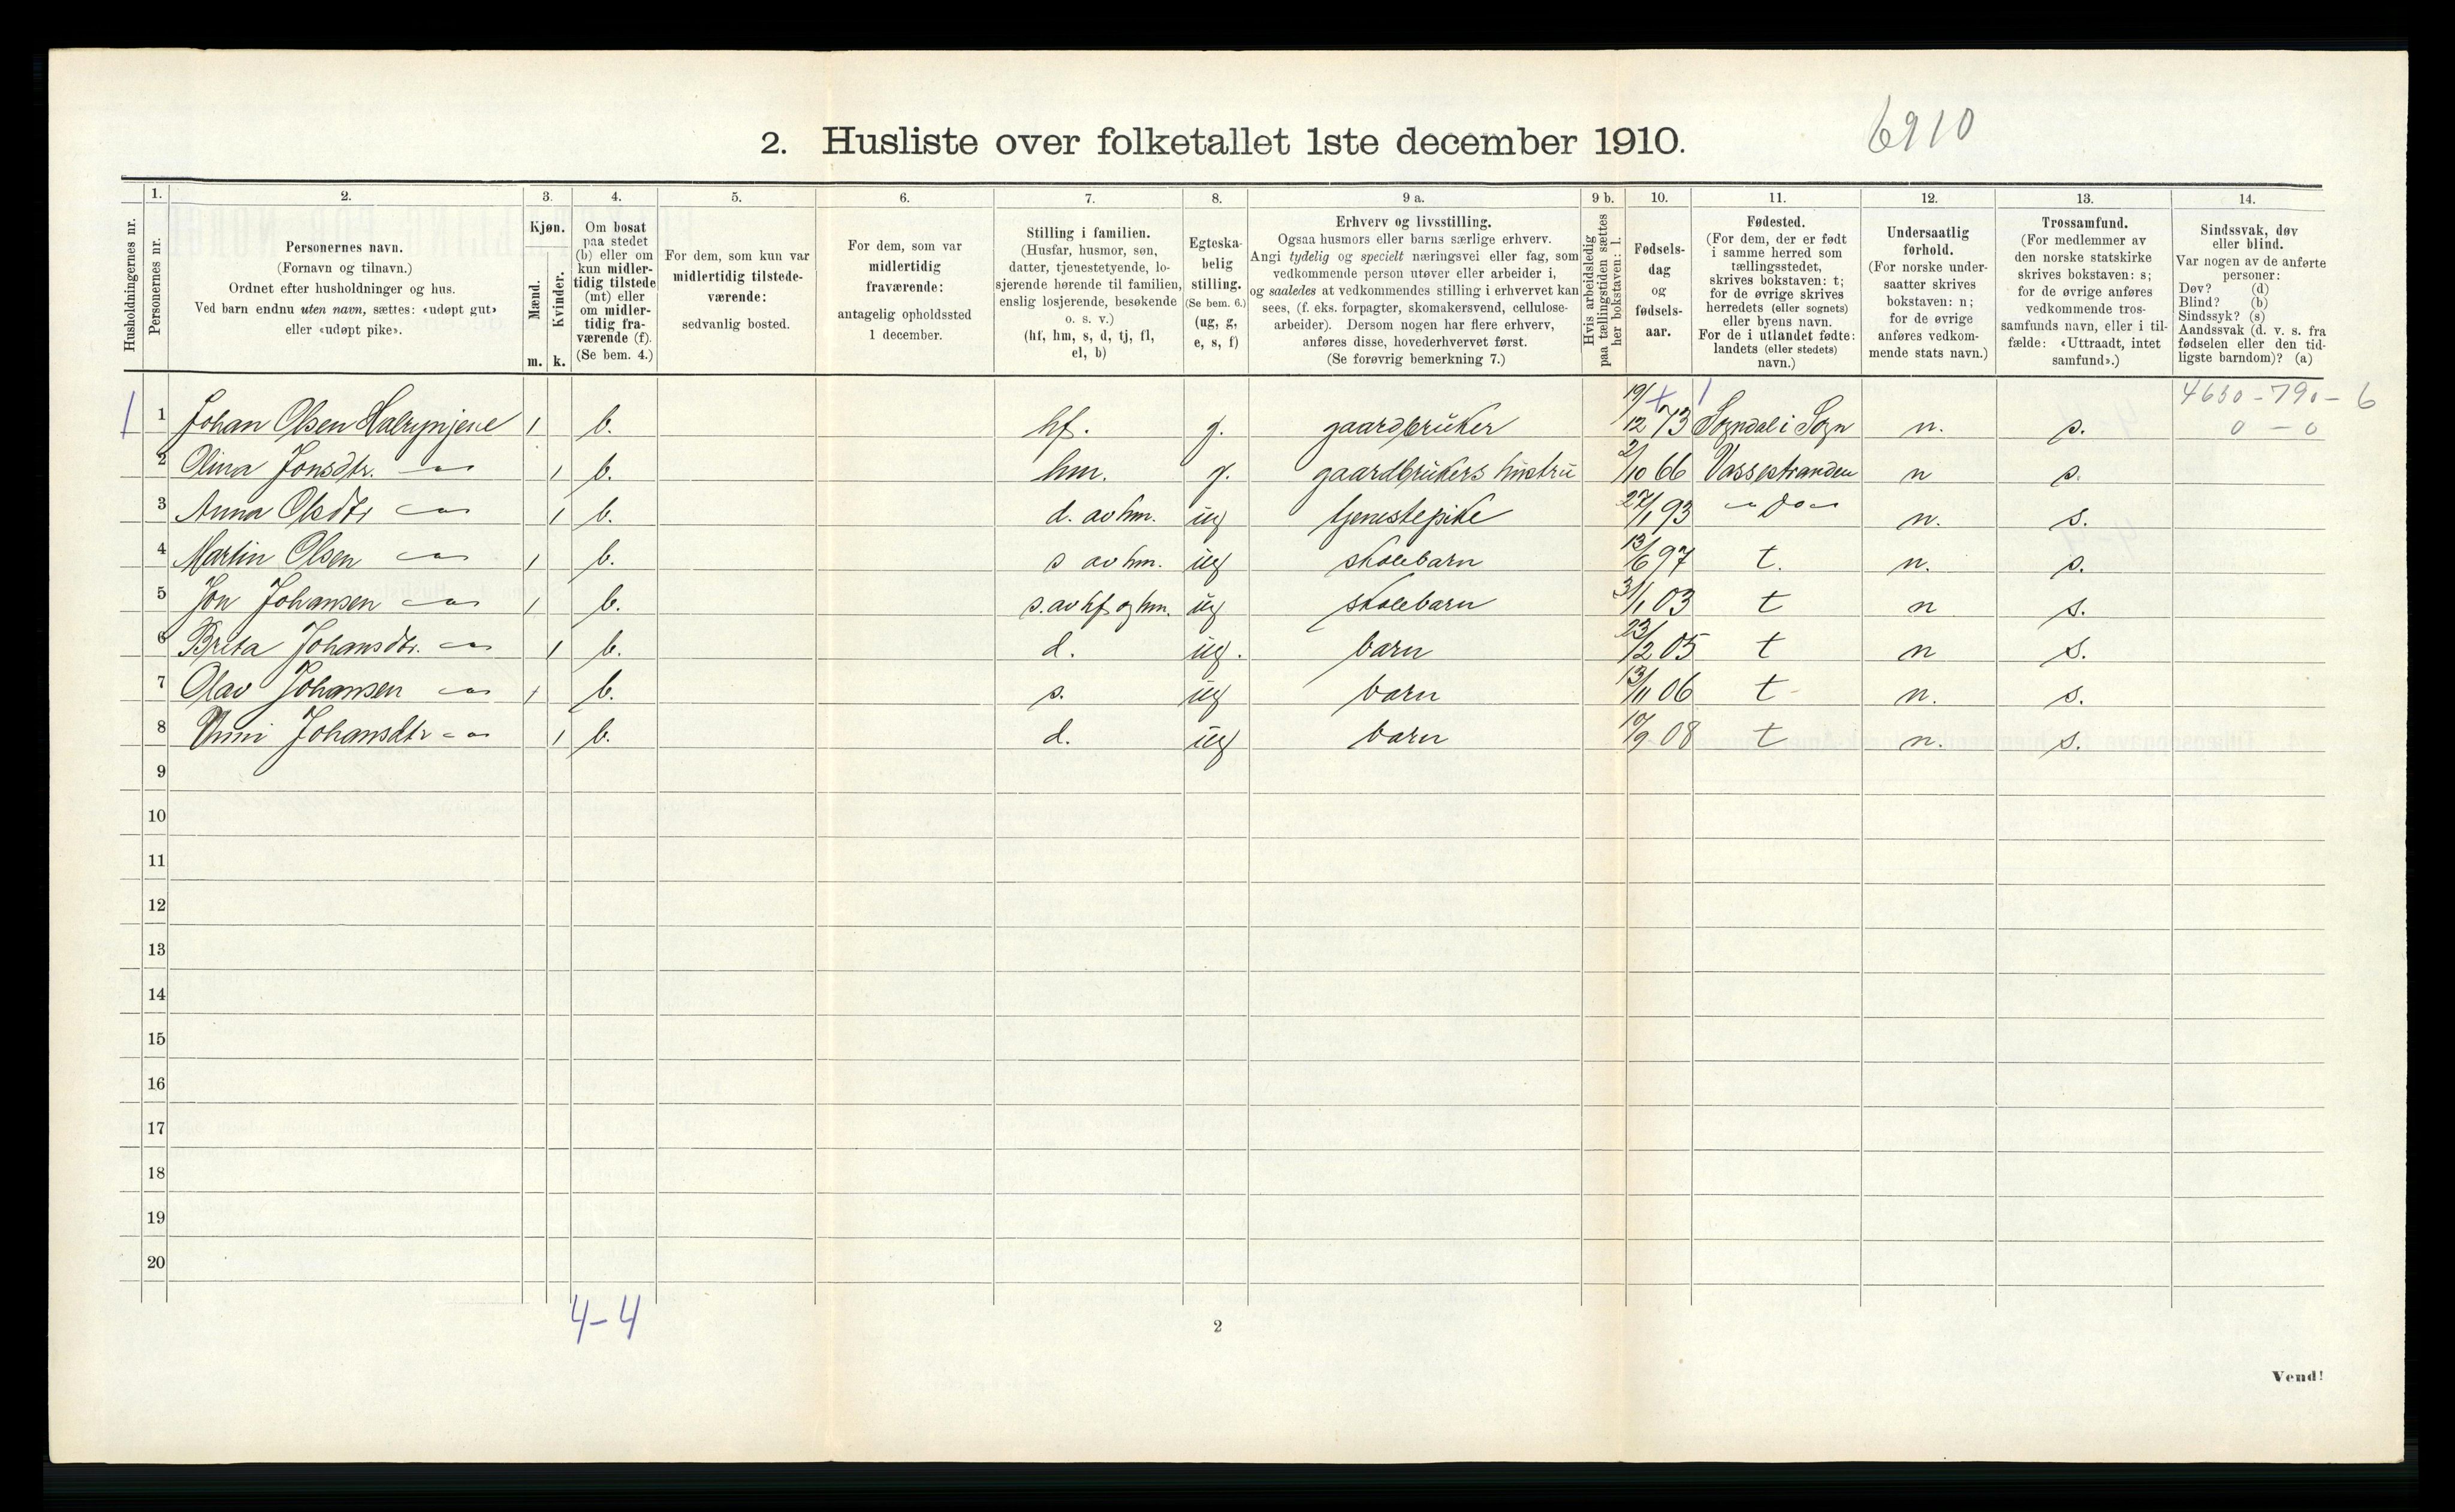 2. Husliste over folketallet 1ste december 1910.
6910
Husholdningernes nr.
1.
Personernes nr.
2.
Personernes navn.
(Fornavn og tilnavn.)
Ordnet efter husholdninger og hus.
Ved barn endnu uten navn, sættes: «udøpt gut»
eller «udøpt pike».
3.
Kjøn.
Mænd. Kvinder.
m. k.
4.
Om bosat
paa stedet
(b) eller om
kun midler-
tidig tilstede
(mt) eller
om midler-
tidig fra-
værende (f).
(Se bem. 4.)
5.
For dem, som kun var
midlertidig tilstede-
værende:
sedvanlig bosted.
6.
For dem, som var
midlertidig
fraværende:
antagelig opholdssted
1 december.
7.
Stilling i familien.
(Husfar, husmor, søn,
datter, tjenestetyende, lo-
sjerende hørende til familien,
enslig losjerende, besøkende
o. s. v.)
(hf, hm, s, d, tj, fl,
el, b)
8.
Egteska-
belig
stilling.
(Se bem. 6.)
(ug, g,
e, s, f)
9 a.
Erhverv og livsstilling.
Ogsaa husmors eller barns særlige erhverv.
Angi tydelig og specielt næringsvei eller fag, som
vedkommende person utøver eller arbeider i,
og saaledes at vedkommendes stilling i erhvervet kan
sees, (f. eks. forpagter, skomakersvend, cellulose-
arbeider). Dersom nogen har flere erhverv,
anføres disse, hovederhvervet først.
(Se forøvrig bemerkning 7.)
9 b.
Hvis arbeidsledig
paa tællingstiden sættes
her bokstaven: l.
10.
Fødsels-
dag
og
fødsels-
aar.
11.
Fødested.
(For dem, der er født
i samme herred som
tællingsstedet,
skrives bokstaven: t;
for de øvrige skrives
herredets (eller sognets)
eller byens navn.
For de i utlandet fødte:
landets (eller stedets)
navn.)
12.
Undersaatlig
forhold.
(For norske under-
saatter skrives
bokstaven: n;
for de øvrige
anføres vedkom-
mende stats navn.)
13.
Trossamfund.
(For medlemmer av
den norske statskirke
skrives bokstaven: s;
for de øvrige anføres
vedkommende tros-
samfunds navn, eller i til-
fælde: «Uttraadt, intet
samfund».)
14.
Sindssvak, døv
eller blind.
Var nogen av de anførte
personer:
Døv? (d)
Blind? (b)
Sindssyk? (s)
Aandssvak (d. v. s. fra
fødselen eller den tid-
ligste barndom)? (a)
4630-790-6
0-0
1 1 Johan Olsen Halrynjene 1 b. hf. g. gaardbruker 19/12 73 Sogndal i Sogn n. s.
2 Olina Jonsdtr. —"— 1 b. hm. g. gaardbrukers hustru 2/10 66 Vassestranden n s.
3 Anna Olsdtr —"— 1 b. d. av hm. ug tjenestepike 27/1 93 —"do"— n. s.
4 Martin Olsen —"— 1 b. s av hm. ug skolebarn 13/6 97 t. n. s.
5 Jon Johansen —"— 1 b. s. av hf og hm. ug skolebarn 31/1 03 t n s.
6 Breta Johansdtr. —"— 1 b. d. ug. barn 23/2 05 t n s.
7 Olav Johansen —"— 1 b. s. ug barn 13/11 06 t n. s.
8 Unni Johansdtr —"— 1 b. d. ug barn 10/9 08 t n. s.
9
10
11
12
13
14
15
16
17
18
19
20
4-4
2
Vend!